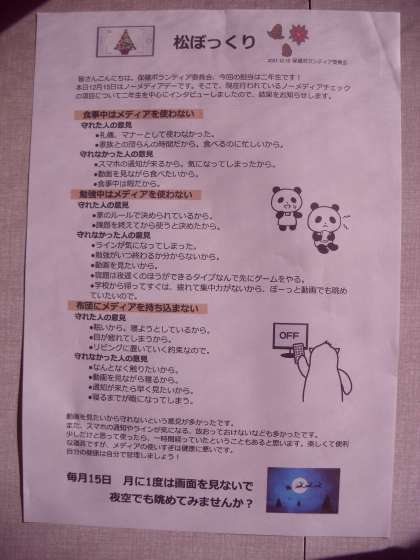 松ぼっくり
2021.12.15 保健ボランティア委員会
皆さんこんにちは、保健ボランティア委員会、今回の担当は二年生です！
本日12月15日はノーメディアデーです。そこで、現在行われているノーメディアチェック
の項目について二年生を中心にインタビューしましたので、結果をお知らせします。
食事中はメディアを使わない
守れた人の意見
●礼儀、マナーとして使わなかった。
●家族との団らんの時間だから、食べるのに忙しいから。
守れなかった人の意見
●スマホの通知が来るから、気になってしまったから。
●動画を見ながら食べたいから。
●食事中は暇だから。
勉強中はメディアを使わない
守れた人の意見
●家のルールで決められているから。
●課題を終えてから使うと決めたから。
守れなかった人の意見
●ラインが気になってしまった。
●勉強がいつ終わるか分からないから。
●動画を見たいから。
●宿題は夜遅くのほうができるタイプなんで先にゲームをやる。
●学校から帰ってすぐは、疲れて集中力がないから、ぼーっと動画でも眺め
ていたいので。
布団にメディアを持ち込まない
守れた人の意見
●眠いから、寝ようとしているから。
●目が疲れてしまうから。
●リビングに置いていく約束なので。
守れなかった人の意見
●なんとなく触りたいから。
●動画を見ながら寝るから。
●通知が来たら早く見たいから。
●寝るまでが暇になってしまう。
OFF
動画を見たいから守れないという意見が多かったです。
また、スマホの通知やラインが気になる、放おっておけないなども多かったです。
少しだけと思って使ったら、一時間経っていたということもあると思います。楽しくて便利
な道具ですが、メディアの使いすぎは健康に悪いです。
自分の健康は自分で管理しましょう！
毎月15日 月に1度は画面を見ないで
夜空でも眺めてみませんか？